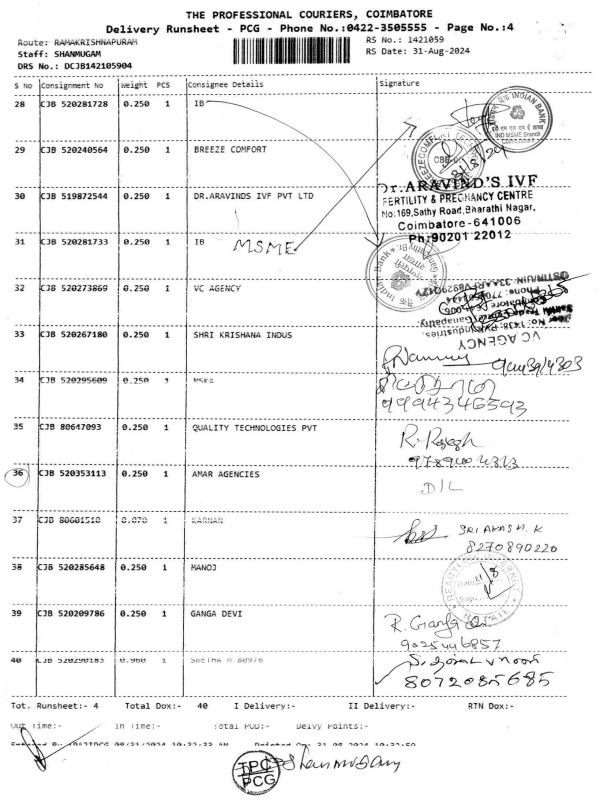 THE PROFESSIONAL COURIERS, COIMBATORE
Delivery Runsheet - PCG - Phone No.:0422-3505555 - Page No.:4
Route: RAMAKRISHNAPURAM
RS No.: 1421059
Staff: SHANMUGAM
RS Date: 31-Aug-2024
DRS No.: DCJB142105904
S No Consignment No Weight PCS Consignee Details Signature
28 CJB 520281728 0.250 1 IB
INDIAN BANK
IND MSME Branch
29 CJB 520240564 0.250 1 BREEZE COMFORT
30 CJB 519872544 0.250 1 DR.ARAVINDS IVF PVT LTD
Dr.ARAVIND'S IVF
FERTILITY & PREGNANCY CENTRE
No:169,Sathy Road,Bharathi Nagar,
Coimbatore-641006
Ph:90201 22012
31 CJB 520281733 0.250 1 IB
MSME
Indian Bank
32 CJB 520273869 0.250 1 VC AGENCY
VC AGENCY
33 CJB 520267180 0.250 1 SHRI KRISHANA INDUS
34 CJB 520295609 0.250 1 MSKA
9994346593
35 CJB 80647093 0.250 1 QUALITY TECHNOLOGIES PVT
R. Rajesh
36 CJB 520353113 0.250 1 AMAR AGENCIES
D/L
37 CJB 80601510 0.070 1 KARNAN
SRI AKASH. K
8270890220
38 CJB 520285648 0.250 1 MANOJ
39 CJB 520209786 0.250 1 GANGA DEVI
R. Ganga
9025446857
40 CJB 520290183 0.960 1 SWETHA M 80976
8072085685
Tot. Runsheet:- 4 Total Dox:- 40 I Delivery:- II Delivery:- RTN Dox:-
Out Time:- In Time:- Total POD:- Delvy Points:-
TPC
PCG
Shanmugam